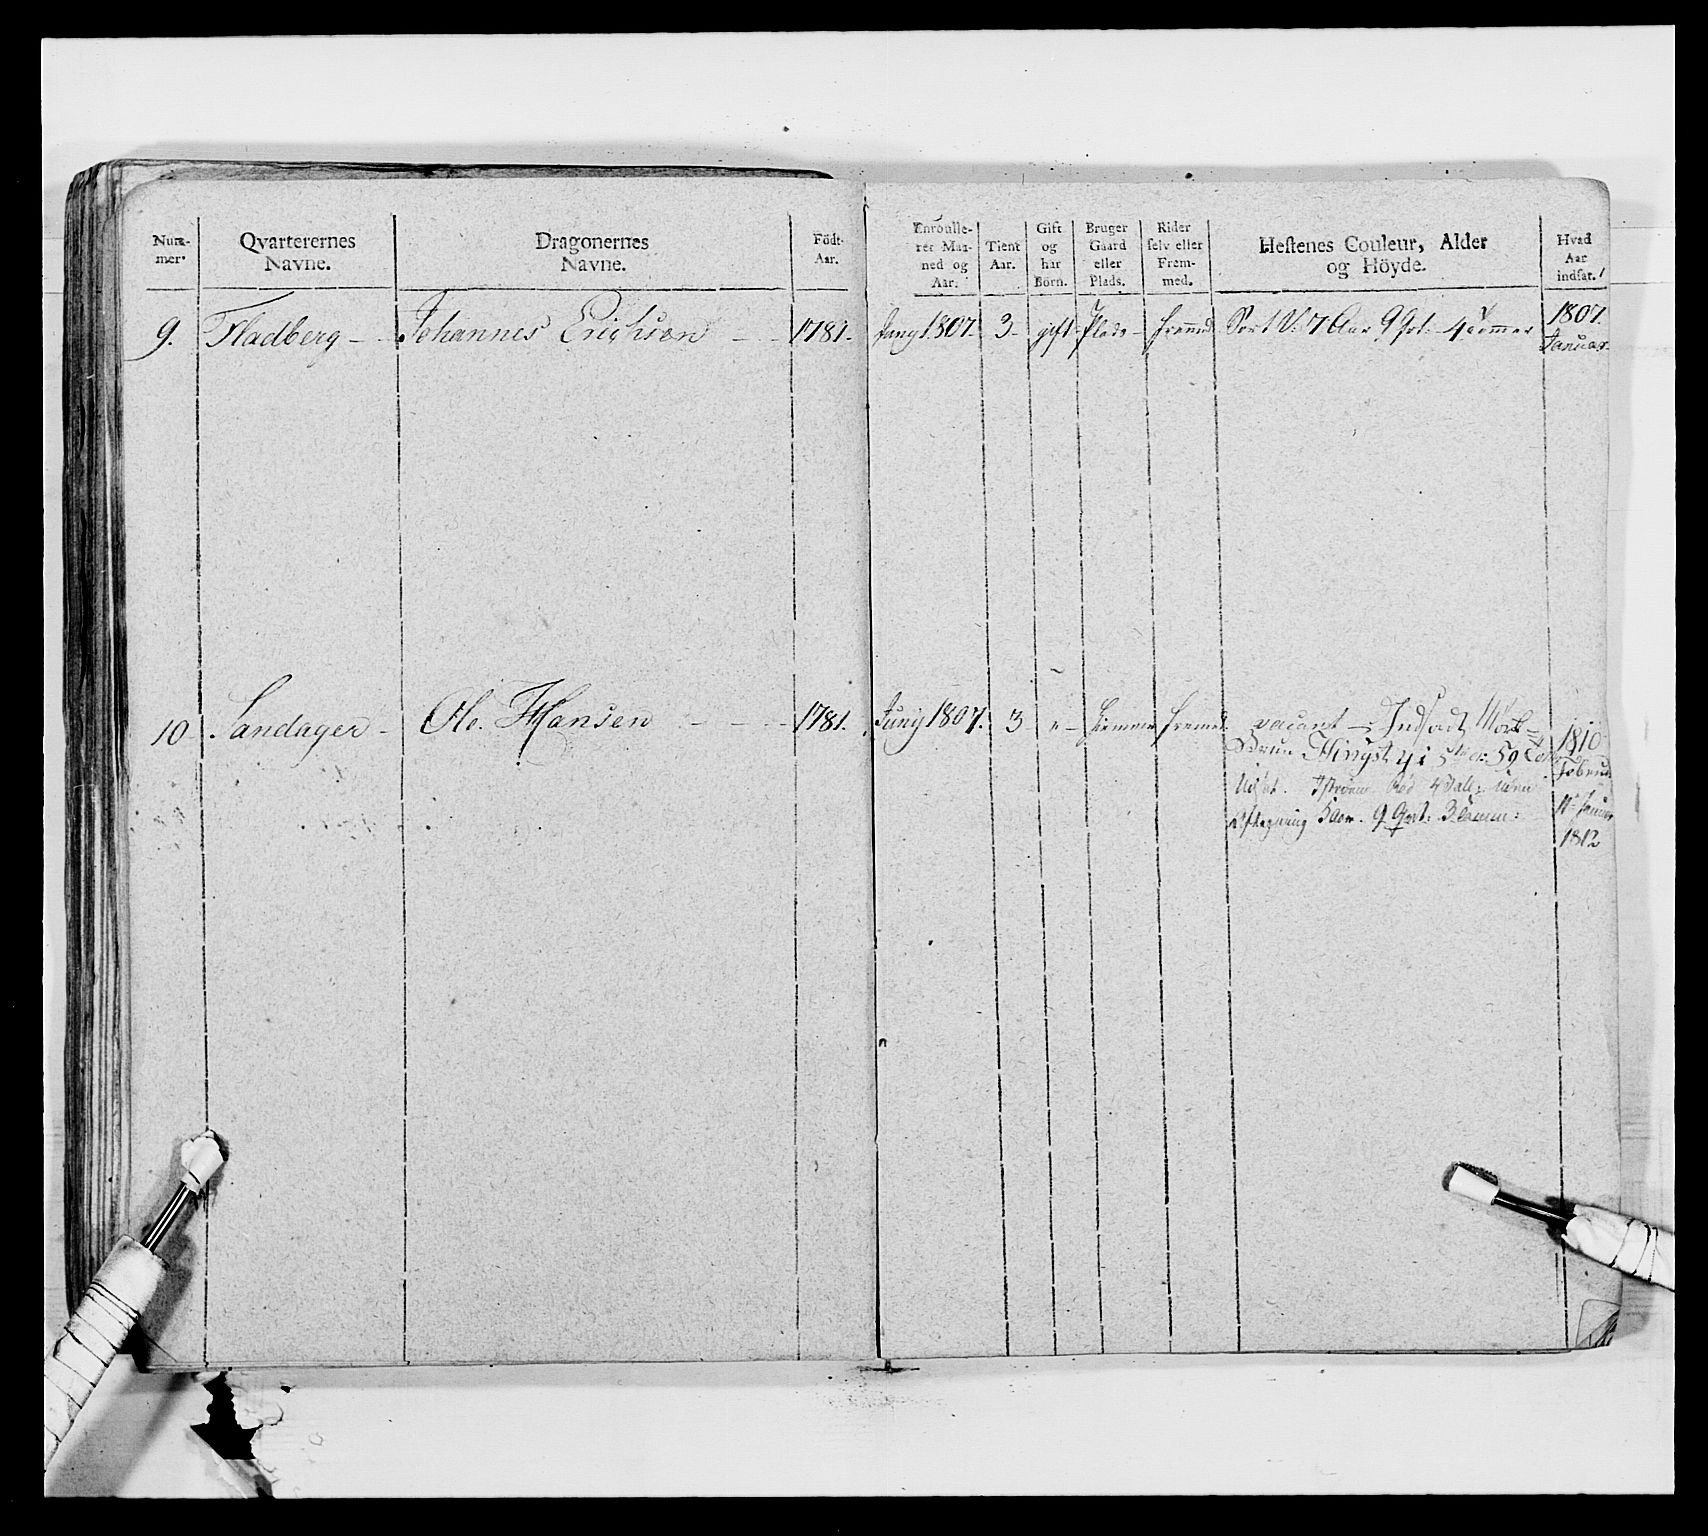 Num-
mer.
Qvarterernes
Navne.
Dragonernes
Navne.
Födt-
Aar.
Enroulle-
ret Maa-
ned og
Aar.
Tient
Aar.
Gift
og
har
Börn.
Bruger
Gaard
eller
Plads.
Rider
selv eller
Frem-
med.
Hestenes Couleur, Alder
og Höyde.
Hvad
Aar
indsat.
9. Fladberg - Johannes Erichsen - 1781. Juny 1807. 3 - gift - Plads - fremd Sort V: 7 Aar 9 Qrt: 4 tommer 1807.
Januar
10 Sandager - Ole Hansen - - - 1781. Juny 1807. 3 " - fremd vacant - Indsadt Mörk- 1810
Brun Hingst 4 i 5 59 Februar
Udsat. Rød uden 11te Januar
Aftegning 5 Aar. 9 Qrt: 3 Tomm: 1812